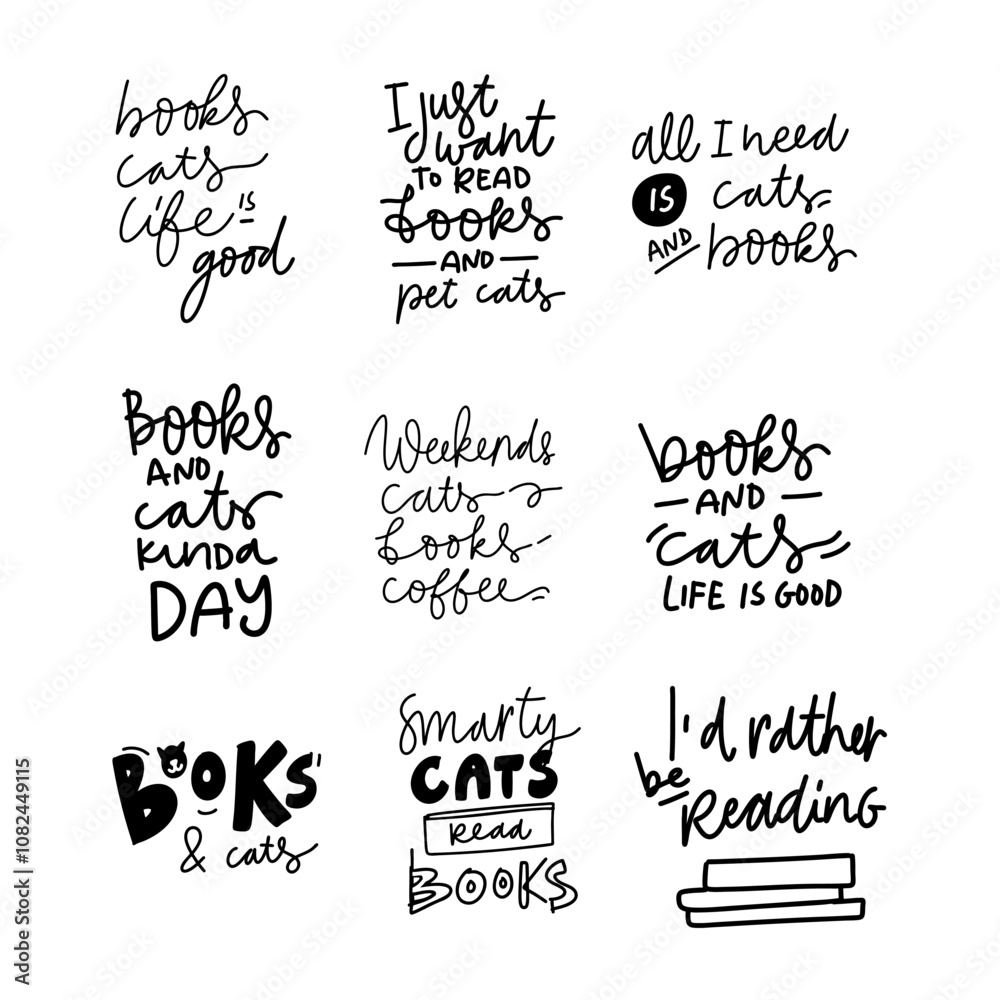 books
cats
life is
good
I just
want
TO READ
books
AND
pet cats
all I need
IS cats
AND books
Books
AND
cats
kinda
DAY
Weekends
cats
books
coffee
books
AND
cats
LIFE IS GOOD
BOOKS
& cats
smarty
CATS
Read
BOOKS
I'd rather
be
Reading
Adobe Stock | #1082449115